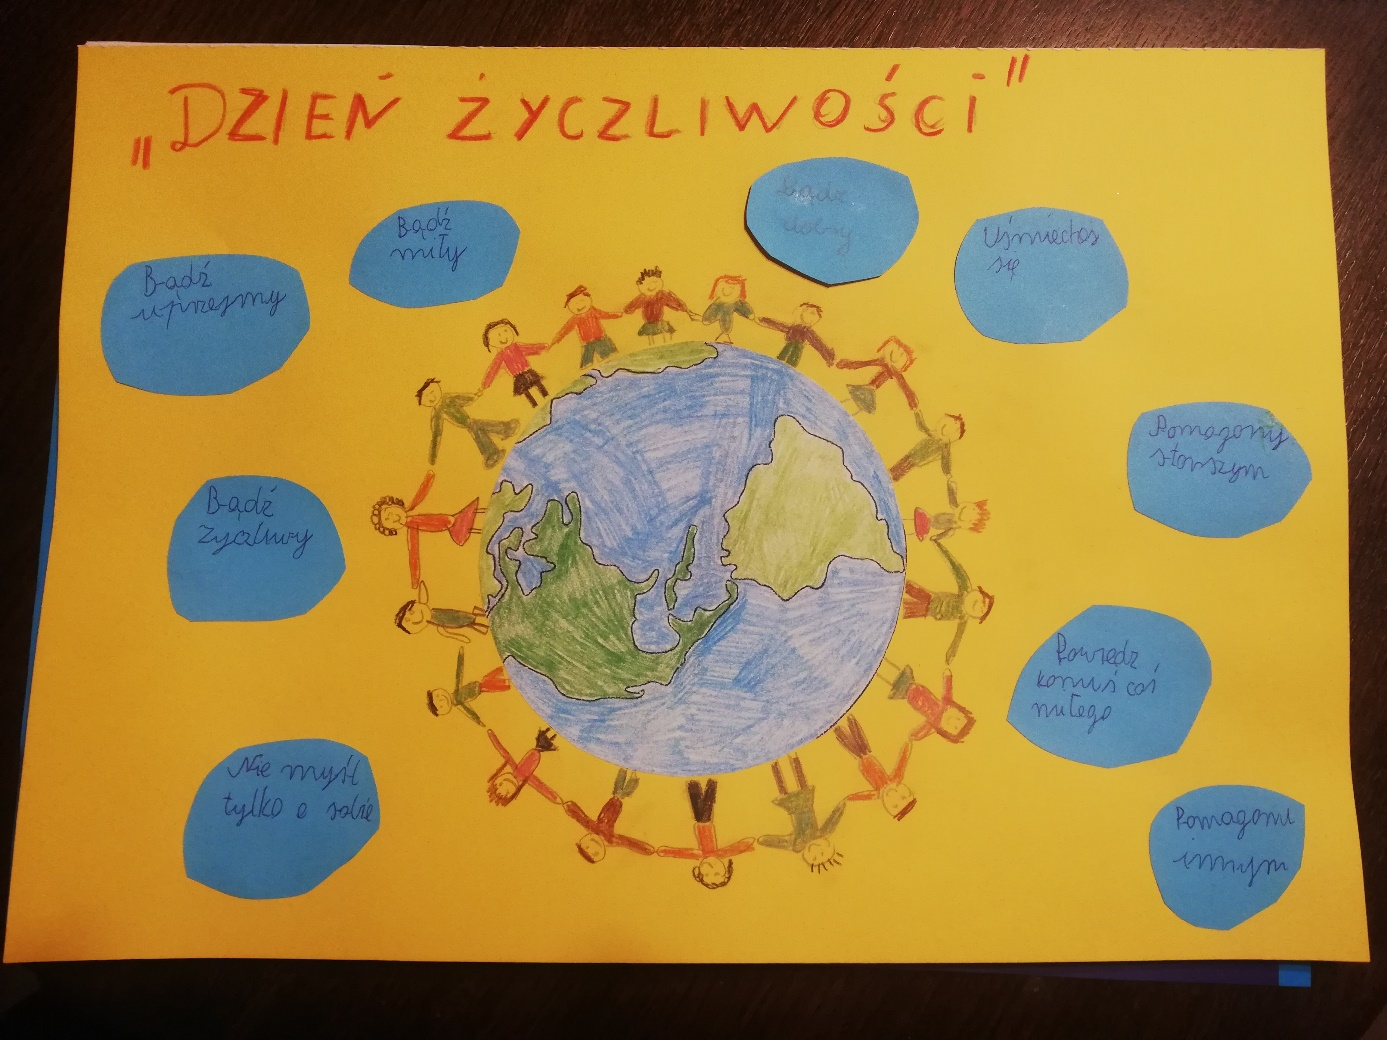 „DZIEŃ ŻYCZLIWOŚCI"
Bądź
miły
Bądź
uprzejmy
Bądź
Uśmiechaj
się
Pomagamy
starszym
Bądź
życzliwy
Powiedz
komuś coś
miłego
Nie myśl
tylko o sobie
Pomagami
innym